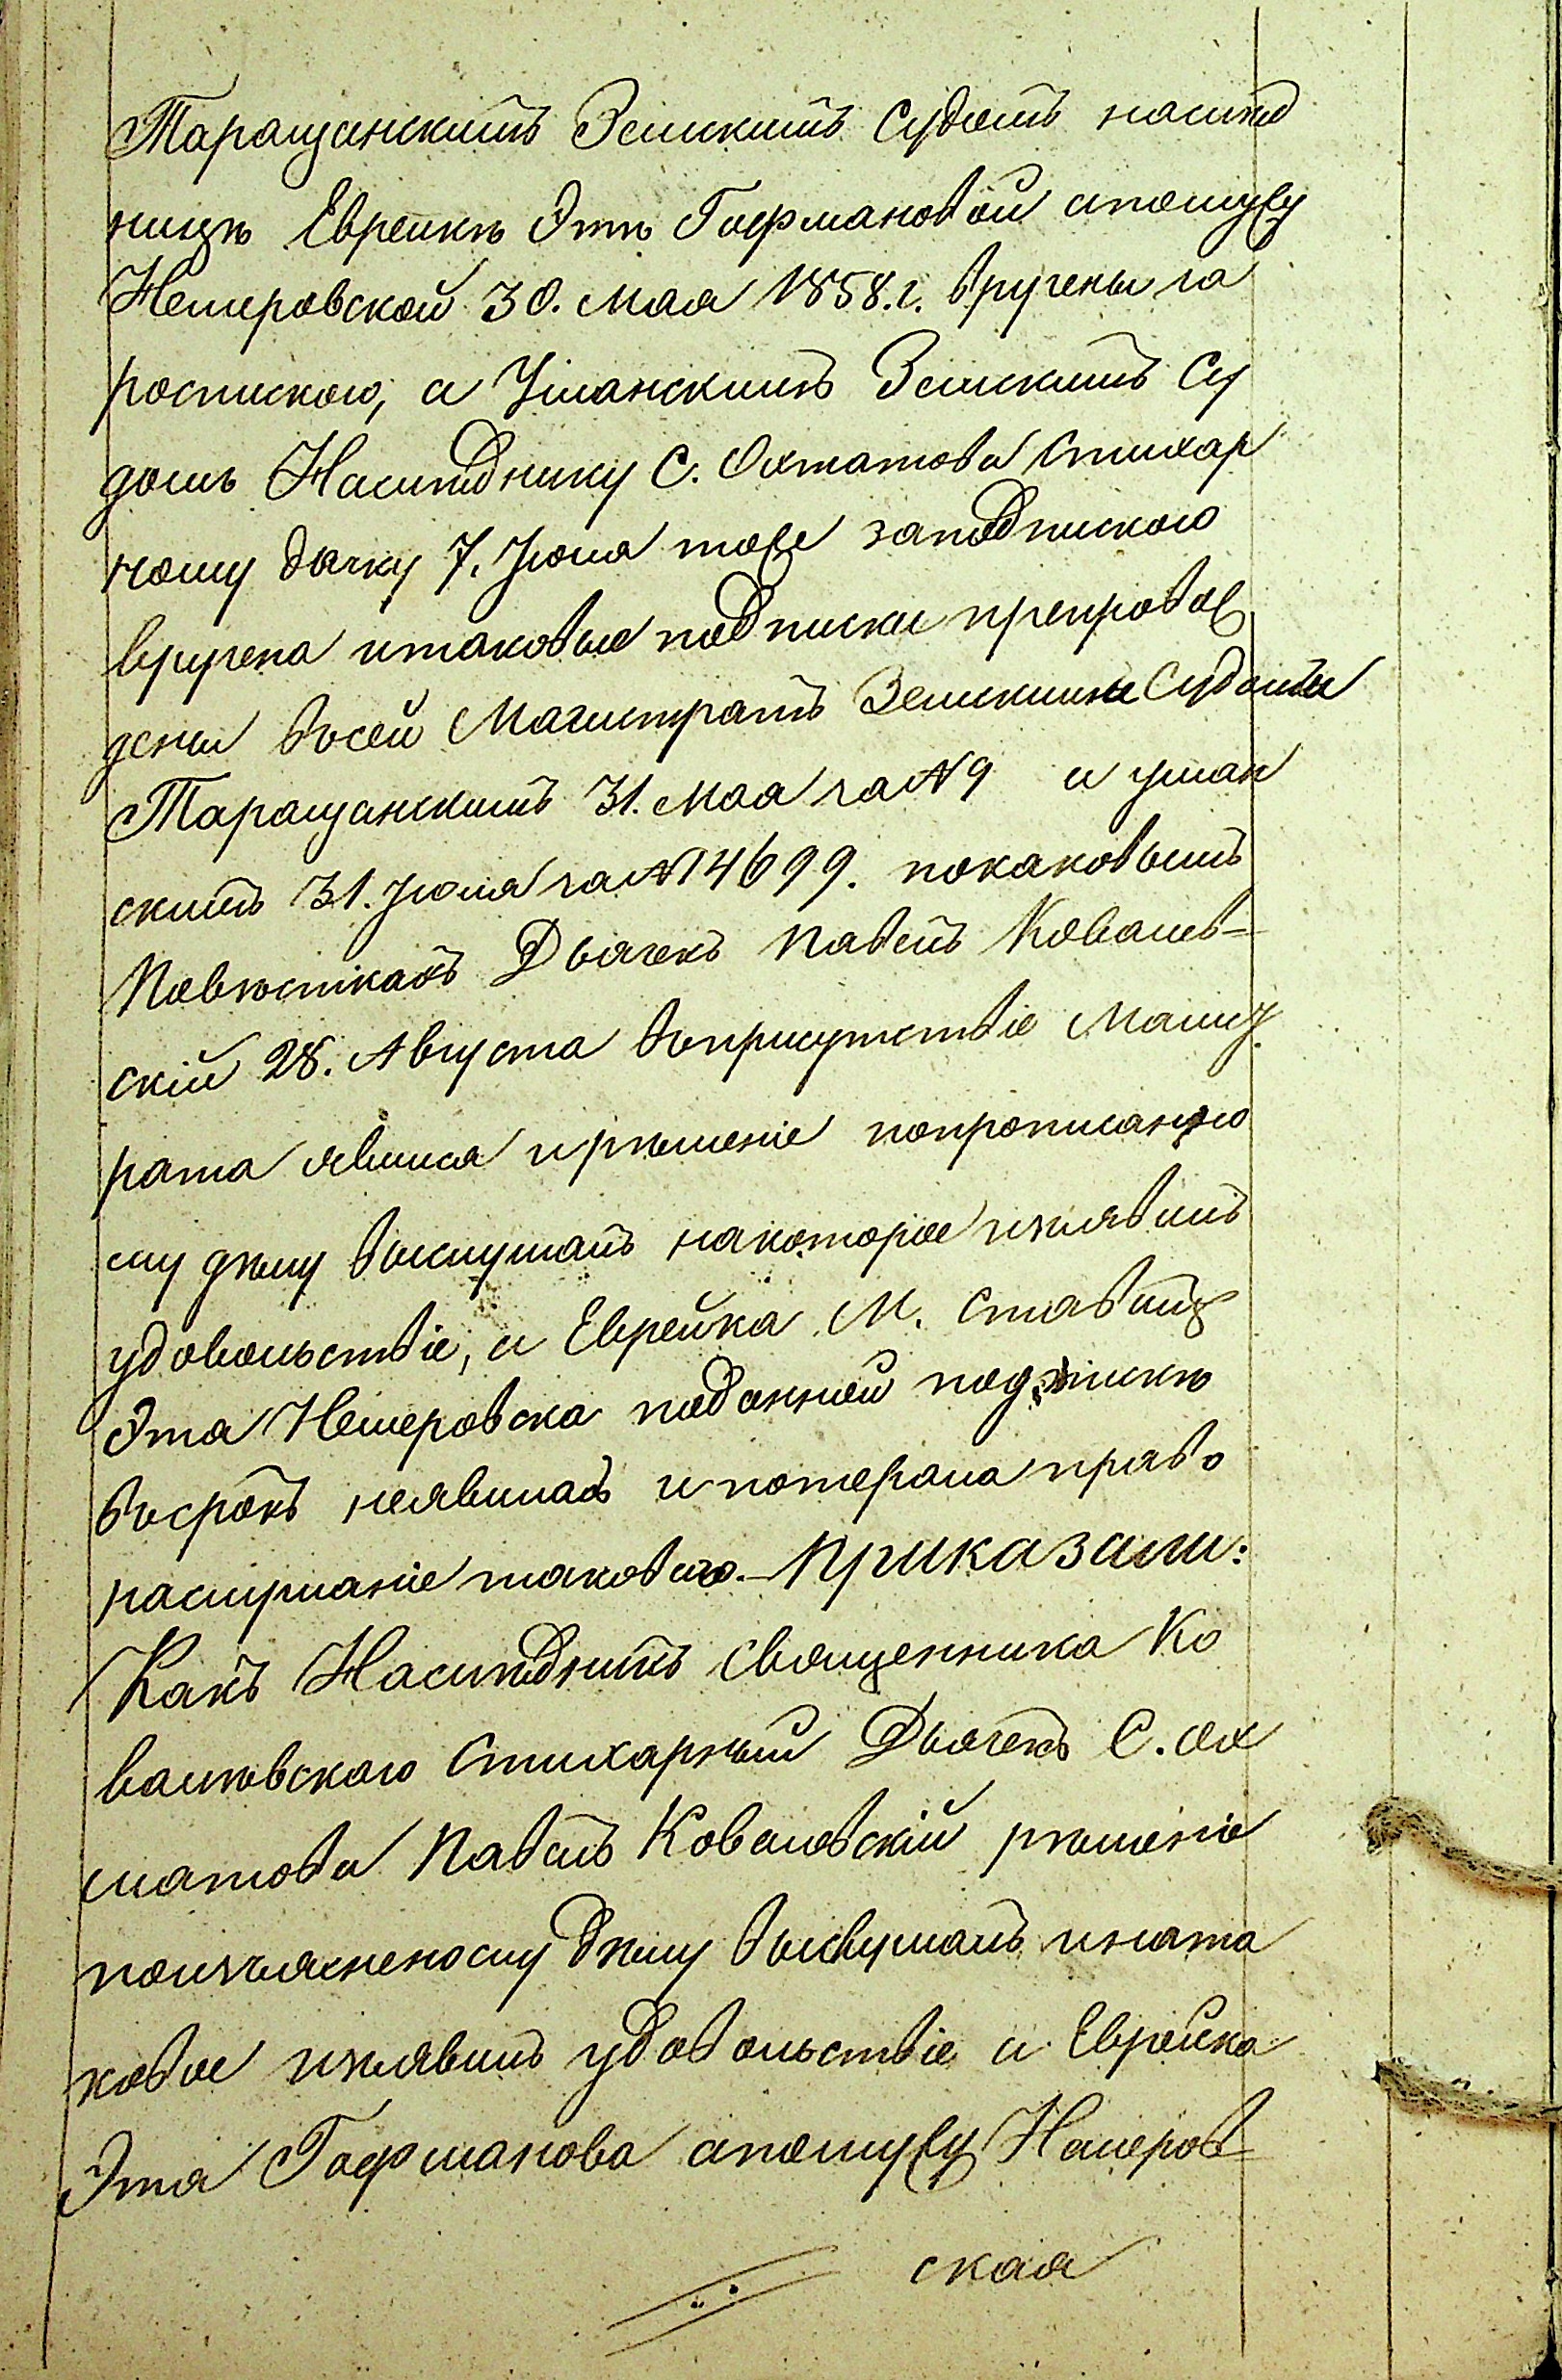 Таращанскимъ Земскимъ Судомъ наслѣд
ницѣ Еврейкѣ Этѣ Гофмановой апомужу
Немеровской 30. мая 1858.г. вручены за
роспискою, а Уманскимъ Земскимъ Су
домъ Наслѣднику С. Охматова Стихар
ному дьячку 7. Іюля тоже заподпискою
вручена итаковые подписки препровож
дены въсей Магистратъ Земскими Судами
Таращанскимъ 31. мая за № 9 и уман
скимъ 31. Іюля за № 14699. покаковымъ
Повѣсткамъ Дьячекъ Павелъ Ковалев-
скій 28. Августа въприсутствіе Магист
рата явился ирѣшеніе попрописанно
му дѣлу выслушалъ накоторое изъявилъ
удовольствіе, а Еврейка М. Ставищ
Эта Немеровска поданной подпискѣ
въсрокъ неявилась ипотеряла право
наслушаніе таковаго. - Приказали:
Какъ Наслѣдникъ Священника Ко
валевскаго Стихарный Дьячекъ С. Ох
матова Павелъ Ковалевскій рѣшеніе
поизъясненному дѣлу выслушалъ ината
ковое изъявилъ удовольствіе а Еврейка
Эта Гофманова апомужу Немеров-
ская